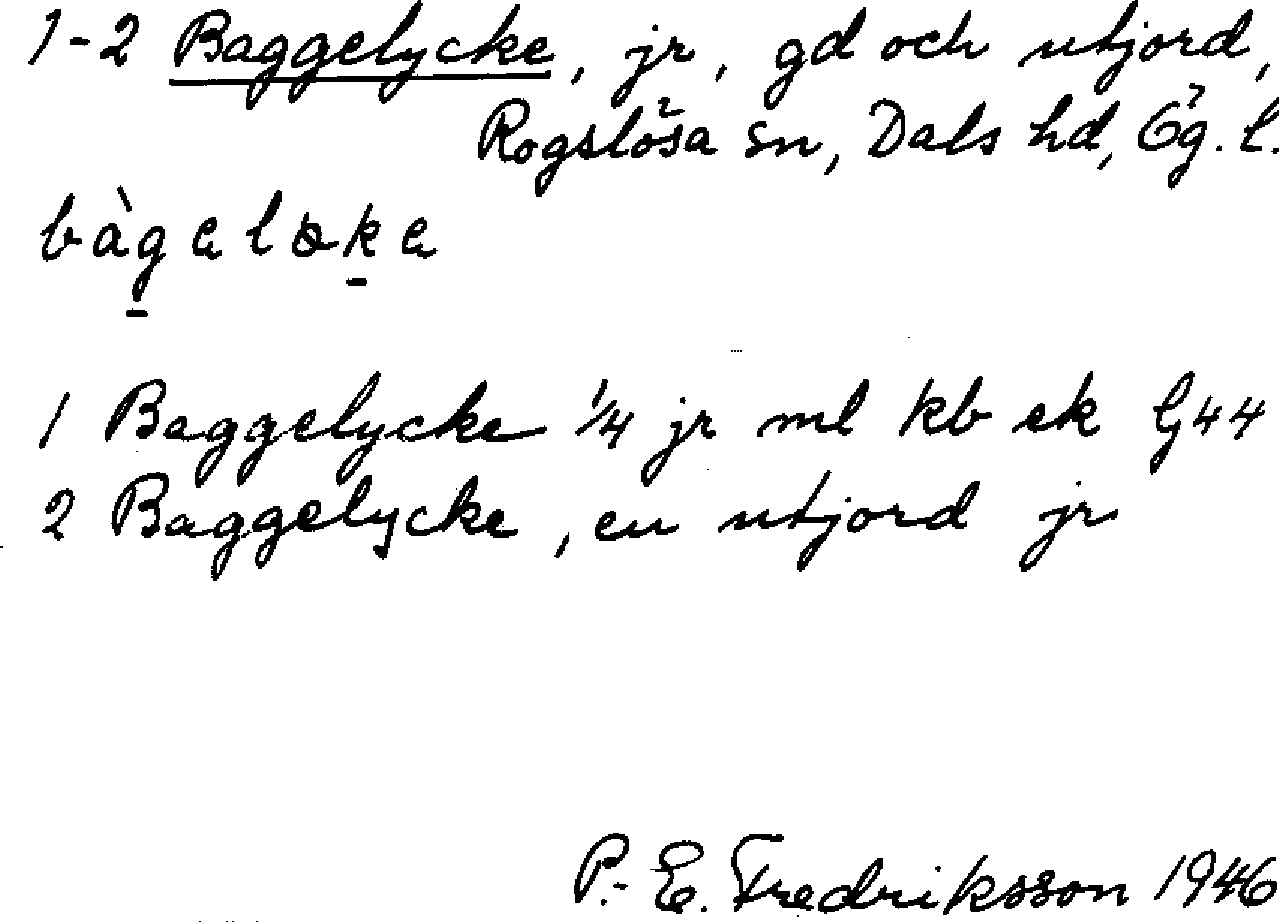 1-2 Baggelycke, jr, gd och utjord,
Rogslösa sn, Dals hd, Ög. l.
bàgeløke
1 Baggelycke 1/4 jr ml kb ek G44
2 Baggelycke, en utjord jr
P.-E. Fredriksson 1946